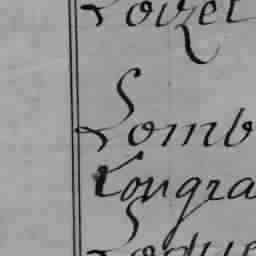 Lovzet
Lomb
Longra
Lodue